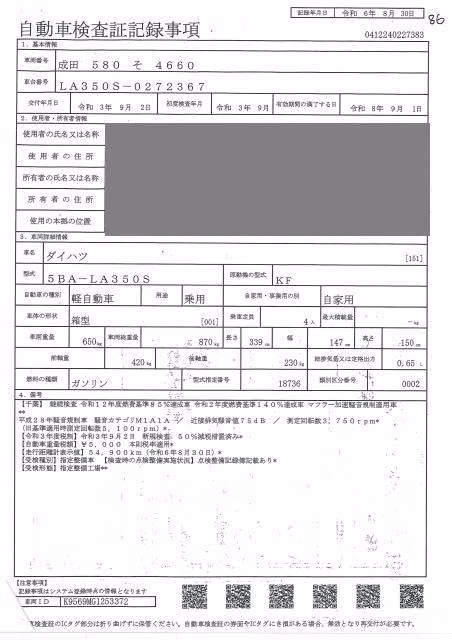 記録年月日 令和 6年 8月 30日
86
自動車検査証記録事項
0412240227383
1. 基本情報
車両番号 成田 580 そ 4660
車台番号 LA350S-0272367
交付年月日 令和 3年 9月 2日 初度検査年月 令和 3年 9月 有効期間の満了する日 令和 8年 9月 1日
2. 使用者・所有者情報
使用者の氏名又は名称
使用者の住所
所有者の氏名又は名称
所有者の住所
使用の本拠の位置
3. 車両詳細情報
車名 ダイハツ [151]
型式 5BA-LA350S 原動機の型式 KF
自動車の種別 軽自動車 用途 乗用 自家用・事業用の別 自家用
車体の形状 箱型 [001] 乗車定員 4人 最大積載量 -kg
車両重量 650kg 車両総重量 870kg 長さ 339cm 幅 147cm 高さ 150cm
前軸重 420kg 後軸重 230kg 総排気量又は定格出力 0.65L
燃料の種類 ガソリン 型式指定番号 18736 類別区分番号 0002
4. 備考
【千葉】 継続検査 令和12年度燃費基準85%達成車 令和2年度燃費基準140%達成車 マフラー加速騒音規制適用車
**
平成28年騒音規制車 騒音カテゴリM1A1A / 近接排気騒音値75dB / 測定回転数3,750rpm*
(旧基準適用時測定回転数5,100rpm)*
【令和3年度税制】令和3年9月2日 新規検査 50%減税措置済み*
【自動車重量税額】¥5,000 本則税率適用*
【走行距離計表示値】54,900km(令和6年8月30日)*
【受検種別】指定整備車 【検査時の点検整備実施状況】点検整備記録簿記載あり*
【受検形態】指定整備工場**
【注意事項】
記録事項はシステム登録時点の情報となります
車両ID K9569MG1253372
検査証のICタグ部分は折り曲げずに保管ください。自動車検査証の券面やICタグにき損がある場合、無効となり再交付が必要です。